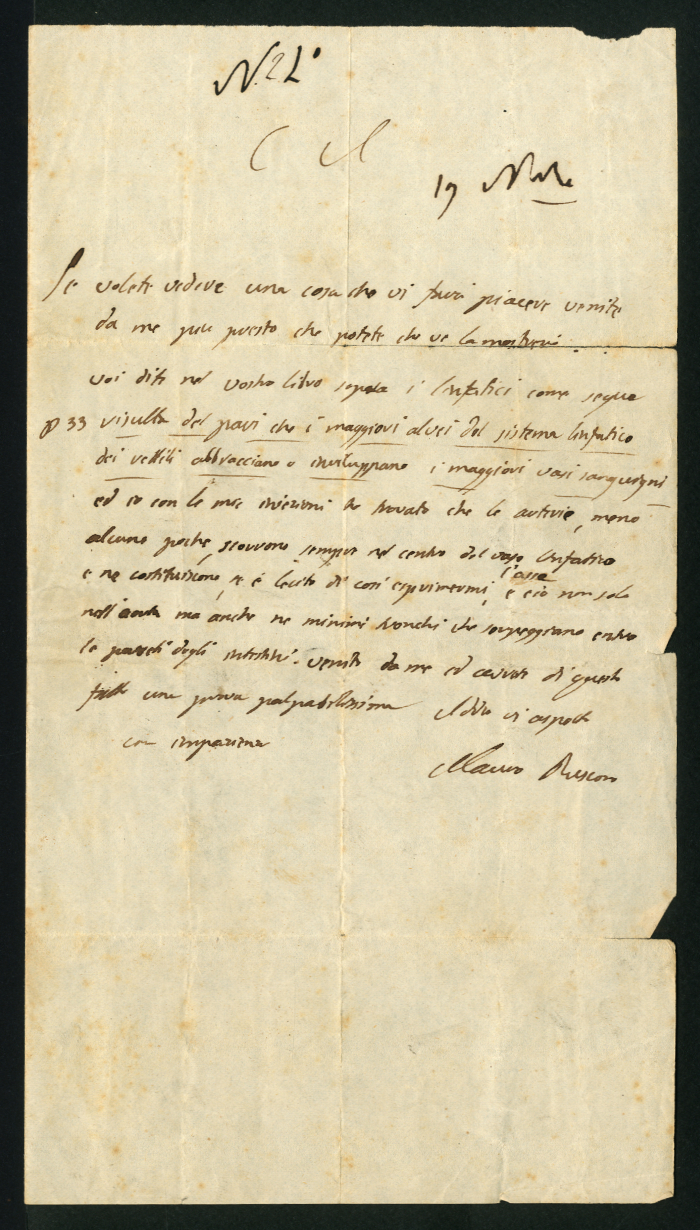 N. 2 L°
C A
19 Nbre
Se volete vedere una cosa che vi farà piacere venite
da me piu presto che potete che ve la mostrerò.
voi dite nel vostro libro sopra i linfatici come segue
p 33 risulta del pari che i maggiori alvei del sistema linfatico
dei rettili abbracciano o inviluppano i maggiori vasi sanguigni
ed io con le mie iniezioni ho trovato che le arterie, meno
alcune poche, scorrono sempre nel centro del vaso linfatico
e ne costituiscono, se è lecito di così esprimermi, l'asse e ciò non solo
nell'aorta ma anche ne minimi tronchi che serpeggiano entro
le pareti degli intestini. venite da me ed avrete di questo
fatto una prova palpabilissima Addio vi aspetto
con impazienza
Mauro Rusconi